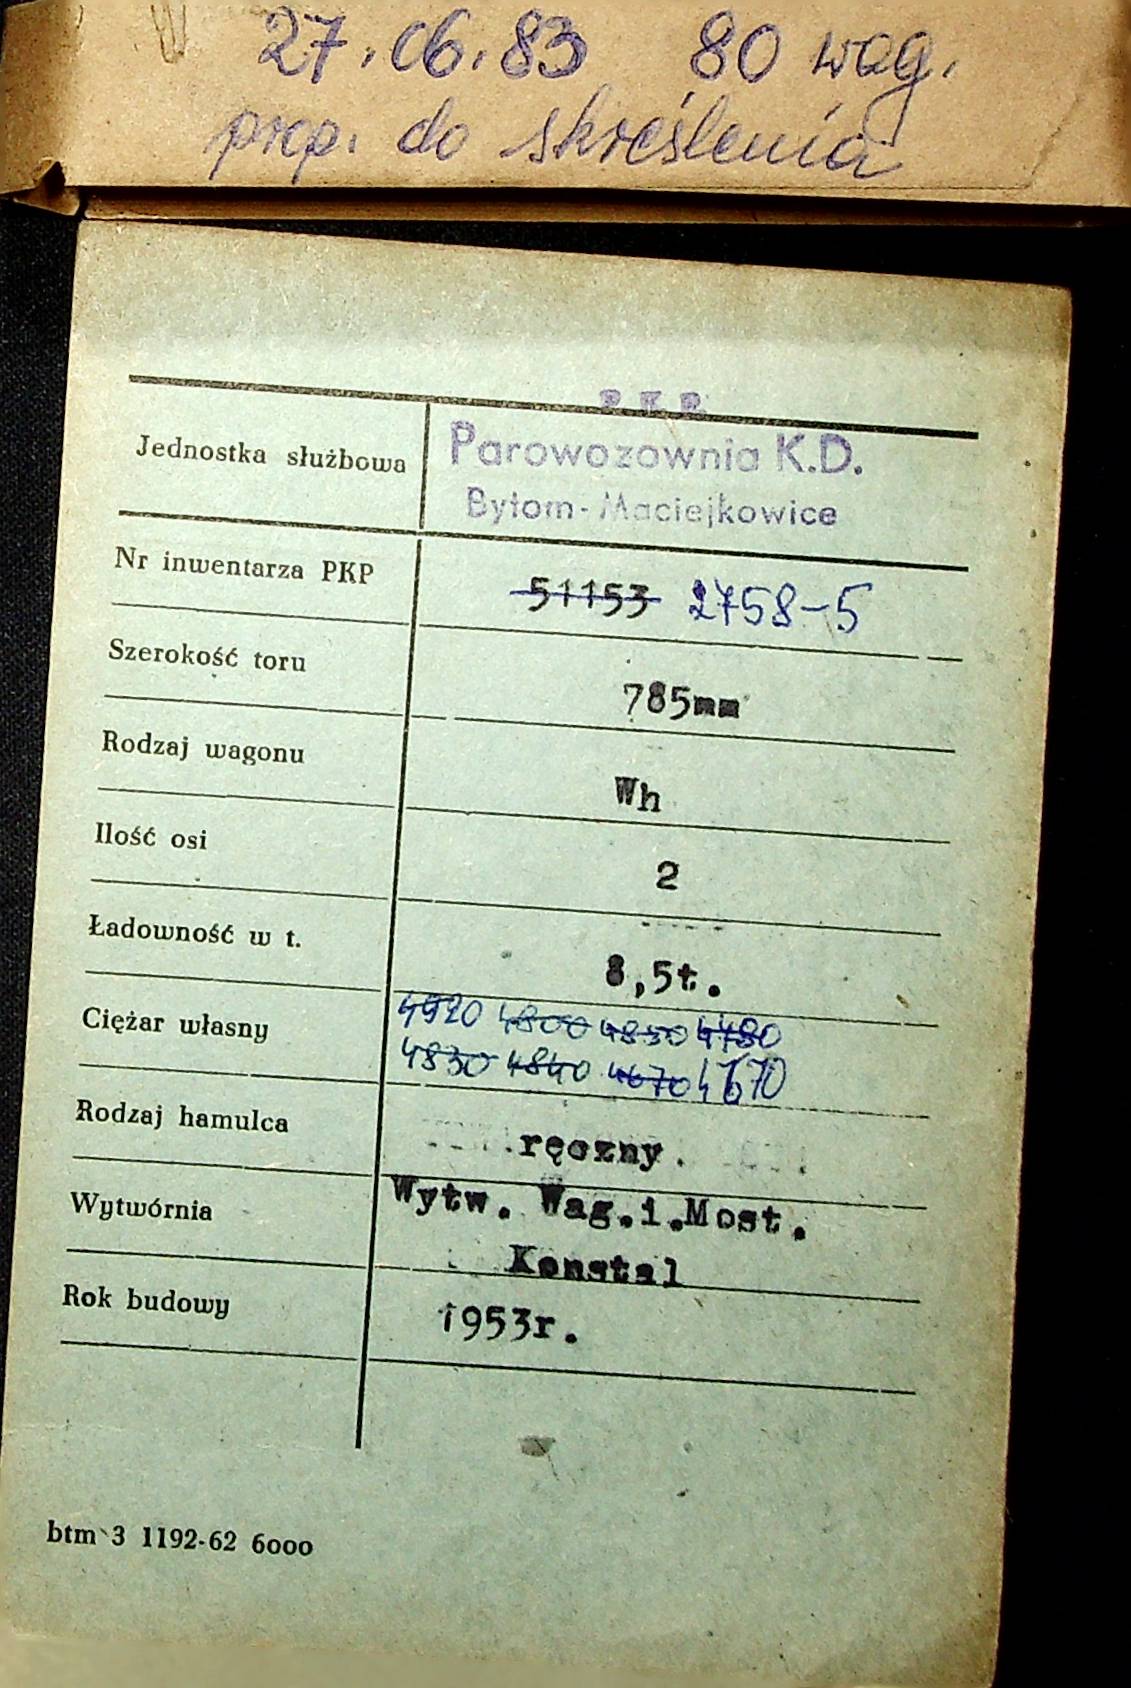 27.06.83 80 wag.
prop. do skreślenia
P.K.P.
Jednostka służbowa Parowozownia K.D.
Bytom-Maciejkowice
Nr inwentarza PKP 51153 2758-5
Szerokość toru 785mm
Rodzaj wagonu Wh
Ilość osi 2
Ładowność w t. 8,5t.
Ciężar własny 4920 4800 4850 4780
4830 4840 4670 4670
Rodzaj hamulca ręczny.
Wytwórnia Wytw. Wag.i.Most.
Konstal
Rok budowy 1953r.
btm 3 1192-62 6000